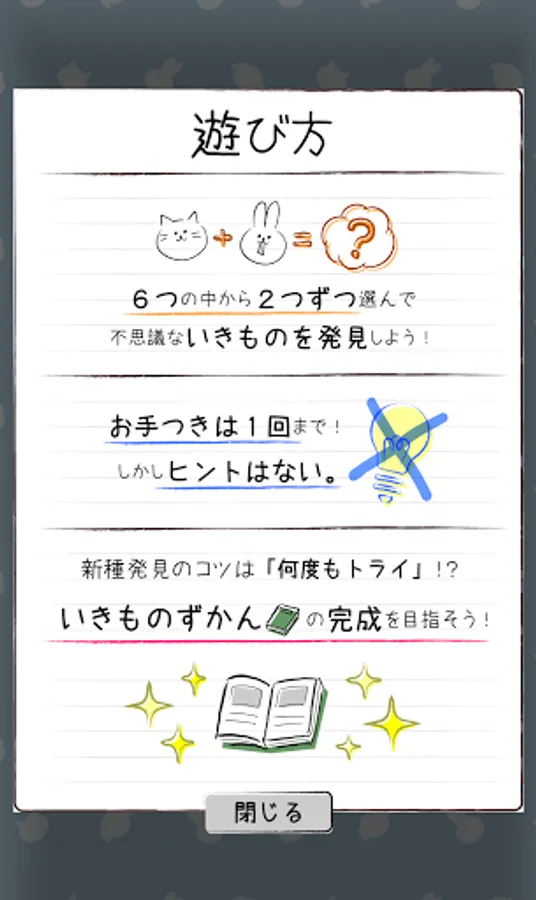 遊び方
+ = ?
６つの中から２つずつ選んで
不思議ないきものを発見しよう！
お手つきは１回まで！
しかしヒントはない。
新種発見のコツは「何度もトライ」!?
いきものずかんの完成を目指そう！
閉じる